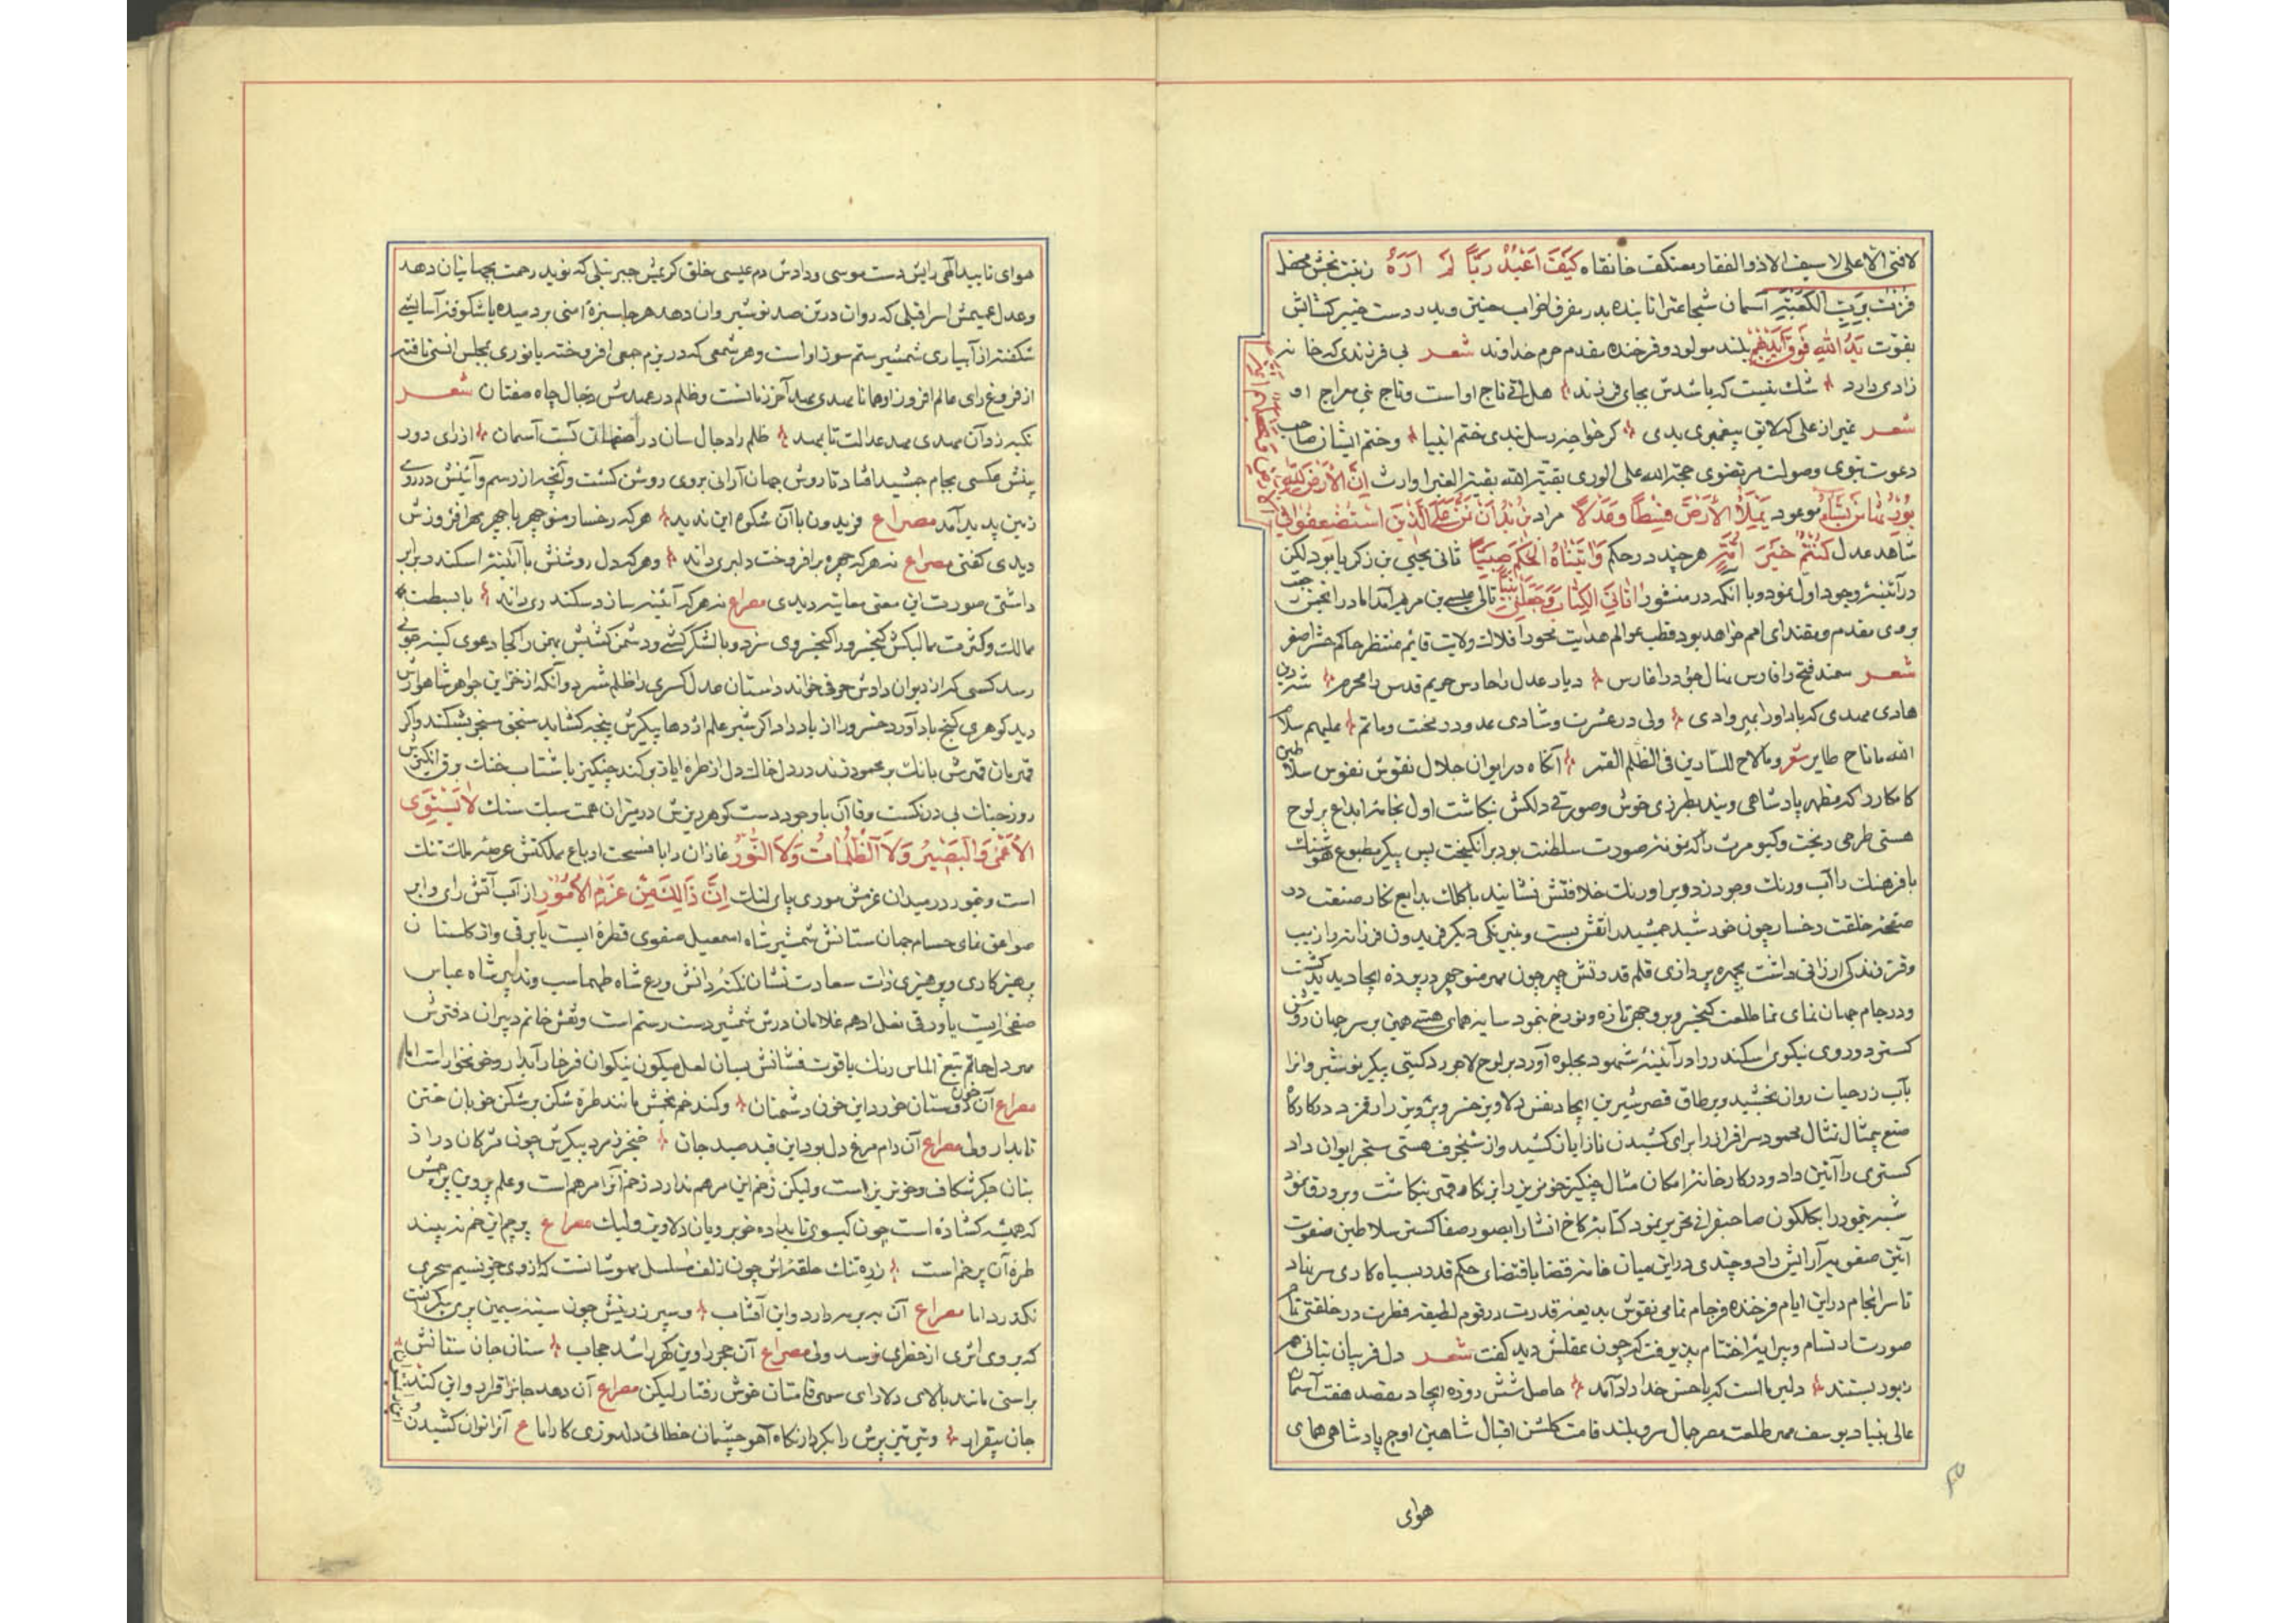 لا فتی الا علی لا سیف الا ذو الفقار معتکف خانقاه کَیفَ اَعبُدُ رَبّاً لَم اَرَهُ زینت بخش محفل
فُزتُ بِرَبِّ الکَعبَةِ آسمان شجاعترا تابنده بدر مفرق احزاب حنین و بدر دست خیبر کشایش
بقوت یَدُ اللهِ فَوقَ اَیدیهِم بلند مولود و فرخنده مقدم حرم خداوند شعر بی فرزندی که خانه
زادی دارد شک نیست که باشدش بجای فرزند هل اتی تاج او است و تاج نبی معراج او
شعر غیر از علی که لایق پیغمبری بدی کر خواجه رسل نبدی ختم انبیا و ختم ایشان صاحب
دعوت نبوی و صولت مرتضوی حجة الله علی الوری بقیة الله بقیة الغبرا وارث اِنَّ الاَرضَ لِلّهِ
یُورِثُها مَن یَشاءُ موعود یَملَأُ الاَرضَ قِسطاً وَعَدلاً مراد نُریدُ اَن نَمُنَّ عَلَی الَّذینَ استُضعِفُوا فِی
شاهد عدل کُنتُم خَیرَ اُمَّةٍ هر چند در حکم وَآتَیناهُ الحُکمَ صَبِیّاً ثانی یحیی بن زکریا بود لیکن
در آئینهٔ وجود اول نمود و با آنکه در منشور آتانِیَ الکِتابَ وَجَعَلَنی نَبِیّاً تالی عیسی بن مریم آمد اما در انجمن
و می مقدم و مقتدای امم خواهد بود قطب عوالم هدایت محور افلاک ولایت قائم منتظر حاکم حشر اصغر
شعر سمند فتح را فارس نهال جود را غارس دیار عدل را حارس حریم قدس را محرم
هادی مهدی که باد او را بهر وادی ولی در عشرت و شادی عدو در محنت و ماتم علیهم سلام
الله ما ناح طایر و ما لاح للسارین فی الظلم القمر آنکاه در ایوان جلال نقوش نفوس سلاطین
کامکار را که مظهر پادشاهی ویند بطرزی خوش و صورتی دلکش بنکاشت اول بخامهٔ ابداع بر لوح
هستی طرحی ریخت و کیومرث را که نو نهٔ صورت سلطنت بود برانکیخت پس پیکر مطبوع هوشنک
با فرهنک را آب و رنک وجود زد و بر اورنک خلافتش نشانید با کلک بدایع نکار صنعت در
صفحهٔ خلقت رخسار چون خورشید جمشید را نقش بست و نیرنکی دیکر فریدون فرزانه را زیب
و فر زندکی ارزانی داشت بچهره پردازی قلم قدرتش چهر چون مهر منوچهر در پردهٔ ایجاد پدید کشت
و در جام جهان نمای نما طلعت کیخسرو بوجهی تازه و نو رخ بنمود سایهٔ همای هستی بهمن بر سر جهان روشن
کسترد و روی نیکوی اسکندر را در آئینهٔ شهود بجلوه آورد بر لوح لاجورد کیتی پیکر نوشیروانرا
بآب زر حیات روان بخشید و بر طاق قصر شیرین ایجاد نقش دلاویز خسرو پرویز را رقم زد در کارکاه
صنع بیمثال تمثال محمود سرافراز را برای کشیدن ناز ایاز کشید و از شنجرف هستی سنجر ایوان داد
کستری را آئین داد و در کارخانهٔ امکان مثال چنکیز خونریز را بر نکاه قهر بنکاشت و بر ورق نمود
شبه تیمور را بکلکون صاحبقرانی تحریر نمود کتابهٔ کاخ انشا را بصور صفا کستر سلاطین صفوت
آئین صفویه آرایش داد و چندی در این میان خامهٔ قضا باقتضای حکم قدر بسیاه کاری سر نهاد
تا سرانجام در این ایام فرخنده فرجام تمامی نقوش بدیعهٔ قدرت و رقوم لطیفهٔ فطرت در خلقتی تام
صورت ارتسام و پیرایهٔ اختتام پذیرفت که چون عقلش دید کفت شعر دل فریبان نباتی همه
زیور بستند دلبر ما است که با حسن خداداد آمد حاصل شش روزه ایجاد مقصد هفت آسمان
عالی بنیاد یوسف مهر طلعت مصر جمال سرو بلند قامت کلشن اقبال شاهین اوج پادشاهی همای
هوای
هوای تایید الهی رایش دست موسی و دادش دم عیسی خلق کریمش جبرئیلی که نوید رحمت بجهانیان دهد
و عدل عمیمش اسرافیلی که روان در تن صد نوشیروان دهد هر جا سبزهٔ امنی بر دمیده یا شکوفهٔ آسایشی
شکفته از آبیاری شمشیر ستم سوز او است و هر شمعی که در بزم جمعی افروخته یا نوری بمجلس انسی تافته
از فروغ رای عالم افروز او همانا مهدی عهد آخر زمانست و ظلم در عهدش دجال چاه صفتان شعر
تکیه زد آن مهدی مهد عدالت تا بمهد ظلم را دجال سان در اصفهان کشت آسمان از رای دور
بینش عکسی بجام جمشید افتاد تا روش جهان آرائی بروی روشن کشت و آنچه از رسم و آئینش در روی
زمین پدید آمد مصراع فریدون با آن شکوه این ندید هر که رخسار منوچهر با چهر مهر افروزش
دیدی کفتی مصراع نه هر که چهره برافروخت دلبری داند و هر که دل روشنش با آئینهٔ اسکندر برابر
داشتی صورت این معنی معاینه دیدی مصراع نه هر که آئینه سازد سکندری داند با بسطت
ممالک و کثرت ممالیکش کیخسرو را کیخسروی سزد و با لشکر کشی و دشمن کشیش بهمن را کجا دعوی کینه جوئی
رسد کسی که از دیوان دادش حرفی خواند داستان عدل کسری را ظلم شمرد و آنکه از خزاین جواهر شاهوارش
دید کوهری کنج باد آورد خسرو را از یاد داد اکر شیر علم اژدها پیکرش پنجه کشاید سنجق سنجری بشکند و اکر
قهرمان قهرش بانک بر محمود زند در دل خاک دل از طرهٔ ایاز برکند چنکیز با شتاب خنک برق انکیزش
روز جنک بی درنکست و قاآن با وجود دست کوهر ریزش در میزان همت سبک سنک لا یَستَوِی
الاَعمی وَالبَصیرُ وَلاَ الظُّلُماتُ وَلاَ النُّورُ غازان را با فسحت ارباع مملکتش عرصهٔ ملک تنک
است و تیمور در میدان عزمش موری پای لنک اِنَّ ذالِکَ مِن عَزمِ الاُمُورِ از آب آتش رای و ابر
صواعق نمای حسام جهان ستانش شمشیر شاه اسمعیل صفوی قطرهٔ ایست یا برقی و از کلستان
پرهیزکاری و پرهیزی ذات سعادت نشان نکته دانش ورع شاه طهماسب و تدابیر شاه عباس
صفحهٔ ایست یا ورقی نعل ادهم غلامان درش شمشیر دست رستم است و نقش خاتم دبیران دفترش
مهر دل حاتم تیغ الماس رنک یاقوت فشانش بسان لعل میکون نیکوان فرخار آبدار و خونخوار است اما
مصراع آن خون دوستان خورد این خون دشمنان و کمند خم بخش مانند طرهٔ شکن بر شکن خوبان ختن
تابدار ولی مصراع آن دام مرغ دل بود این قید صید جان خنجر زمرد پیکرش چون مژکان دراز
بتان جکر شکاف و خونریز است ولیکن زخم این مرهم ندارد زخم آنرا مرهم است و علم پروین پرچمش
که همیشه کشاده است چون کیسوی تابدادهٔ خوبرویان دلاویز ولیک مصراع پرچم این خم نه بیند
طرهٔ آن پر خم است زرهٔ تنک حلقه اش چون زلف مسلسل مهوشانست که از وی جز نسیم سحری
نکذرد اما مصراع آن بدر بر سر دارد و این آفتاب و سپر زرینش چون سینهٔ سیمین بری سکر است
که بروی اثری از خطری نرسد ولی مصراع آن حجر را وین کهر را شد حجاب سنان جان ستانش
براستی مانند بالای دلارای سهی قامتان خوش رفتار لیکن مصراع آن دهد جانرا قرار و این کند
جان بیقرار و تیر تیز پرش را بکردار نکاه آهو چشمان خطائی دلدوزی کار اما ع آنرا توان کشیدن